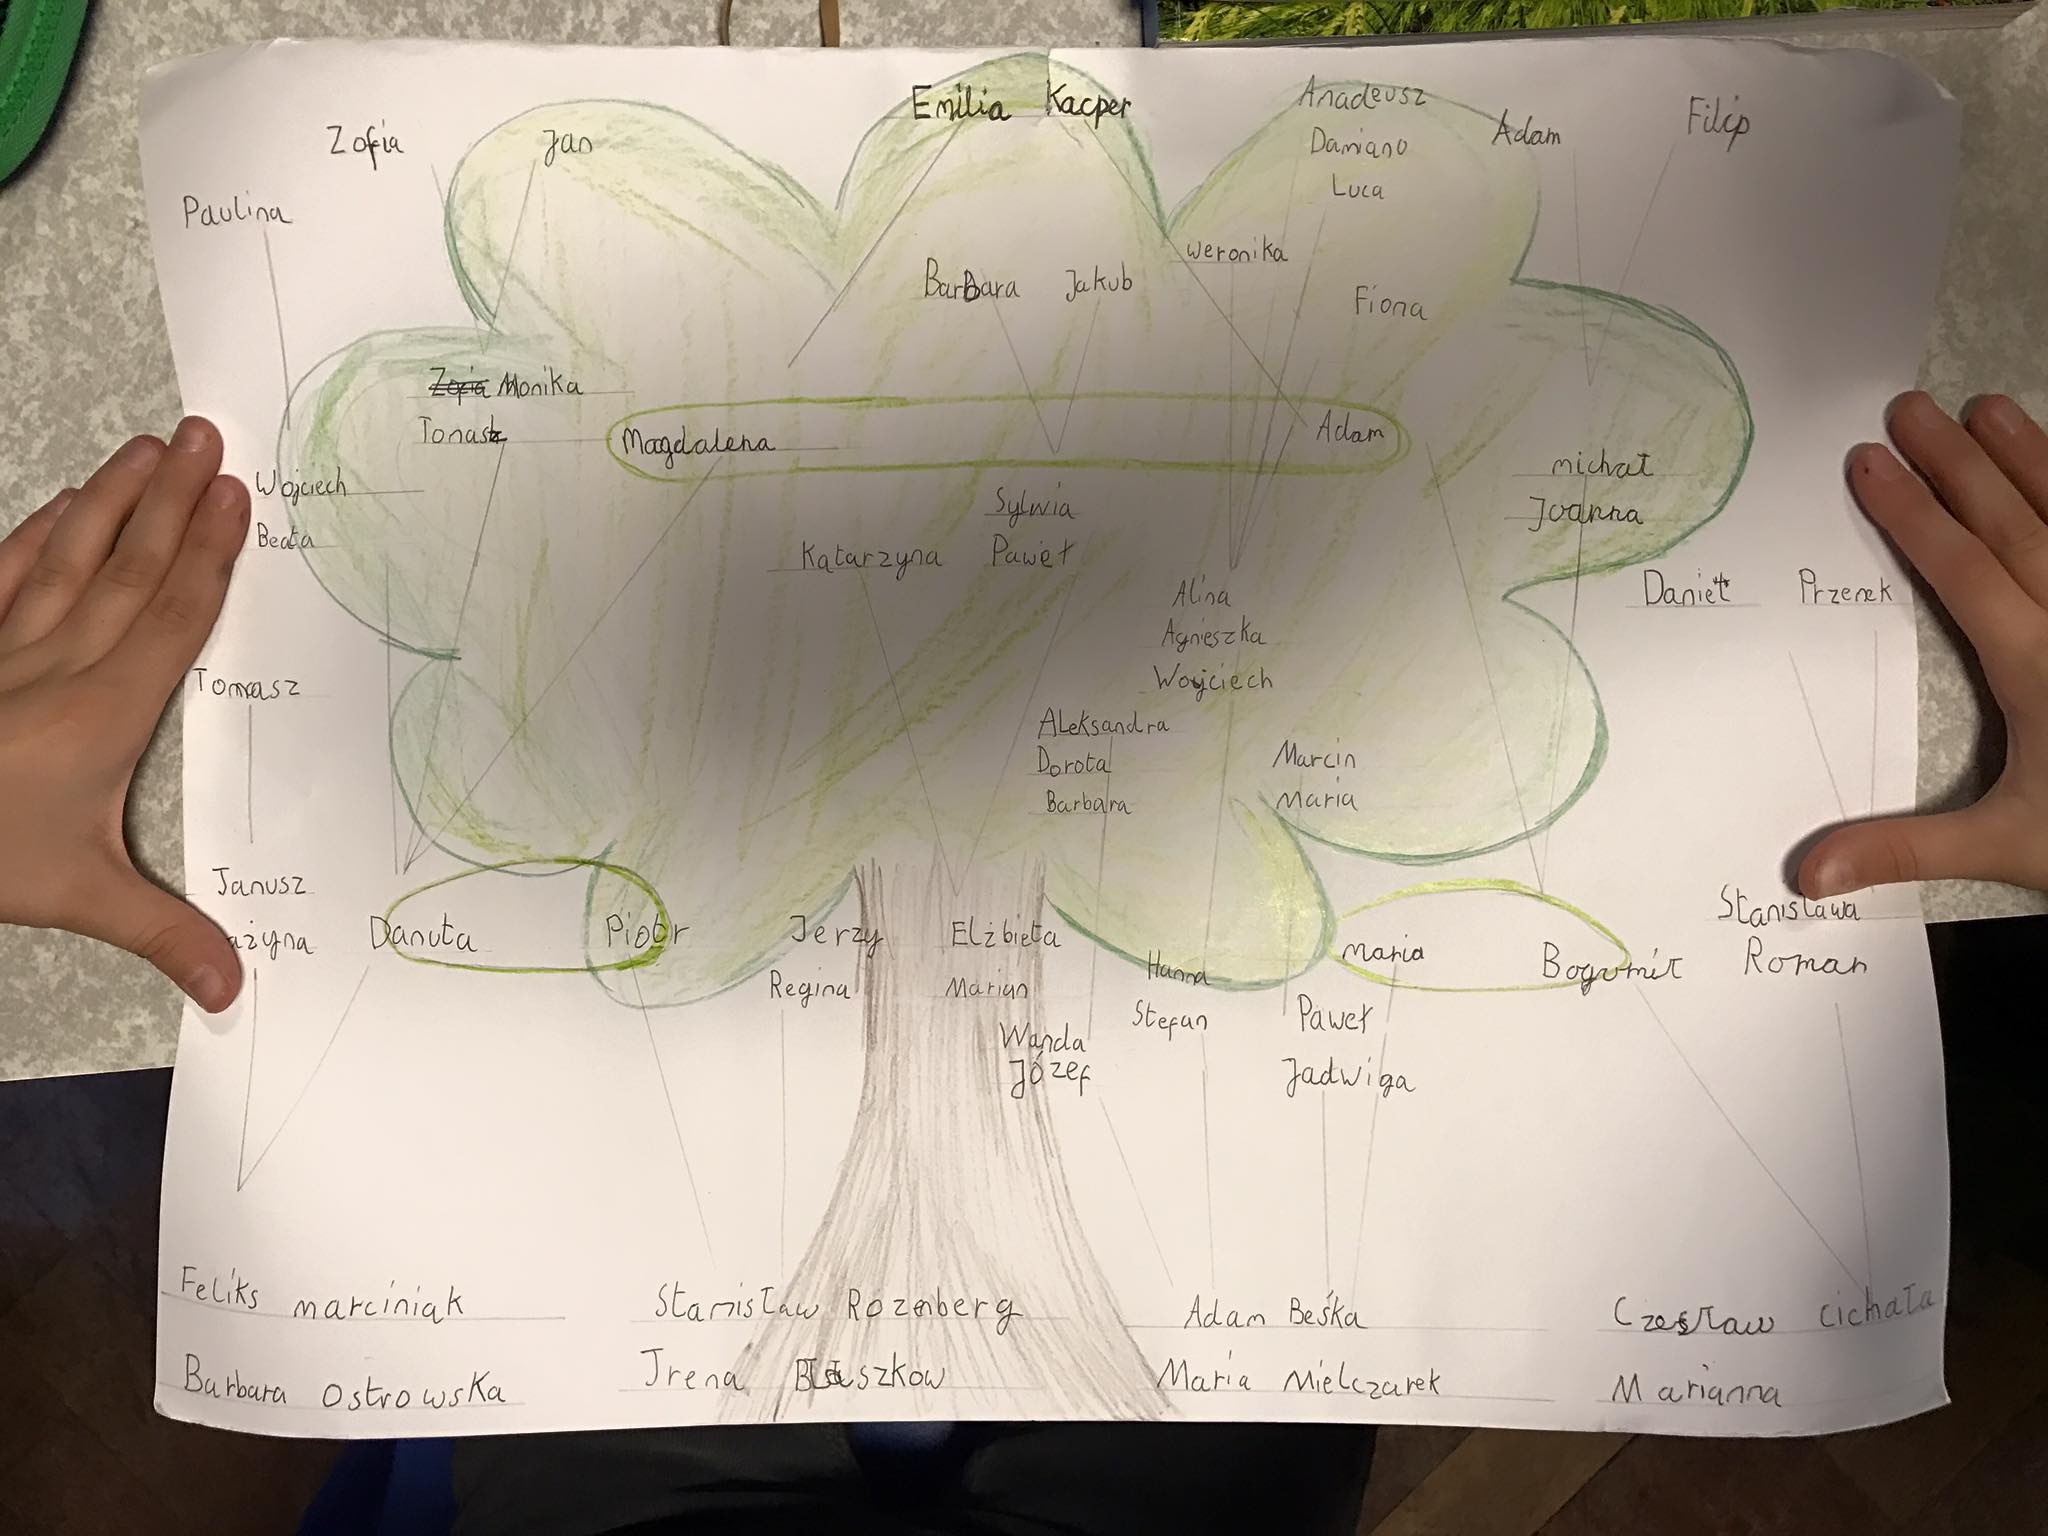 Emilia Kacper
Amadeusz
Damiano
Luca
Adam
Filip
Zofia
Jan
Paulina
Weronika
Fiona
Barbara Jakub
Zofia Monika
Tomasz
Magdalena
Adam
Wojciech
Beata
michał
Joanna
Sylwia
Paweł
Katarzyna
Alina
Agnieszka
Wojciech
Daniel
Przemek
Tomasz
Aleksandra
Dorota
Barbara
Marcin
Maria
Janusz
ażyna
Danuta
Piotr
Jerzy
Regina
Elżbieta
Marian
Hanna
Stefan
maria
Bogumił
Stanisława
Roman
Wanda
Józef
Paweł
Jadwiga
Feliks marciniak
Barbara Ostrowska
Stanisław Rozenberg
Irena
Adam Beśka
Maria Mielczarek
Czesław Cichała
Marianna